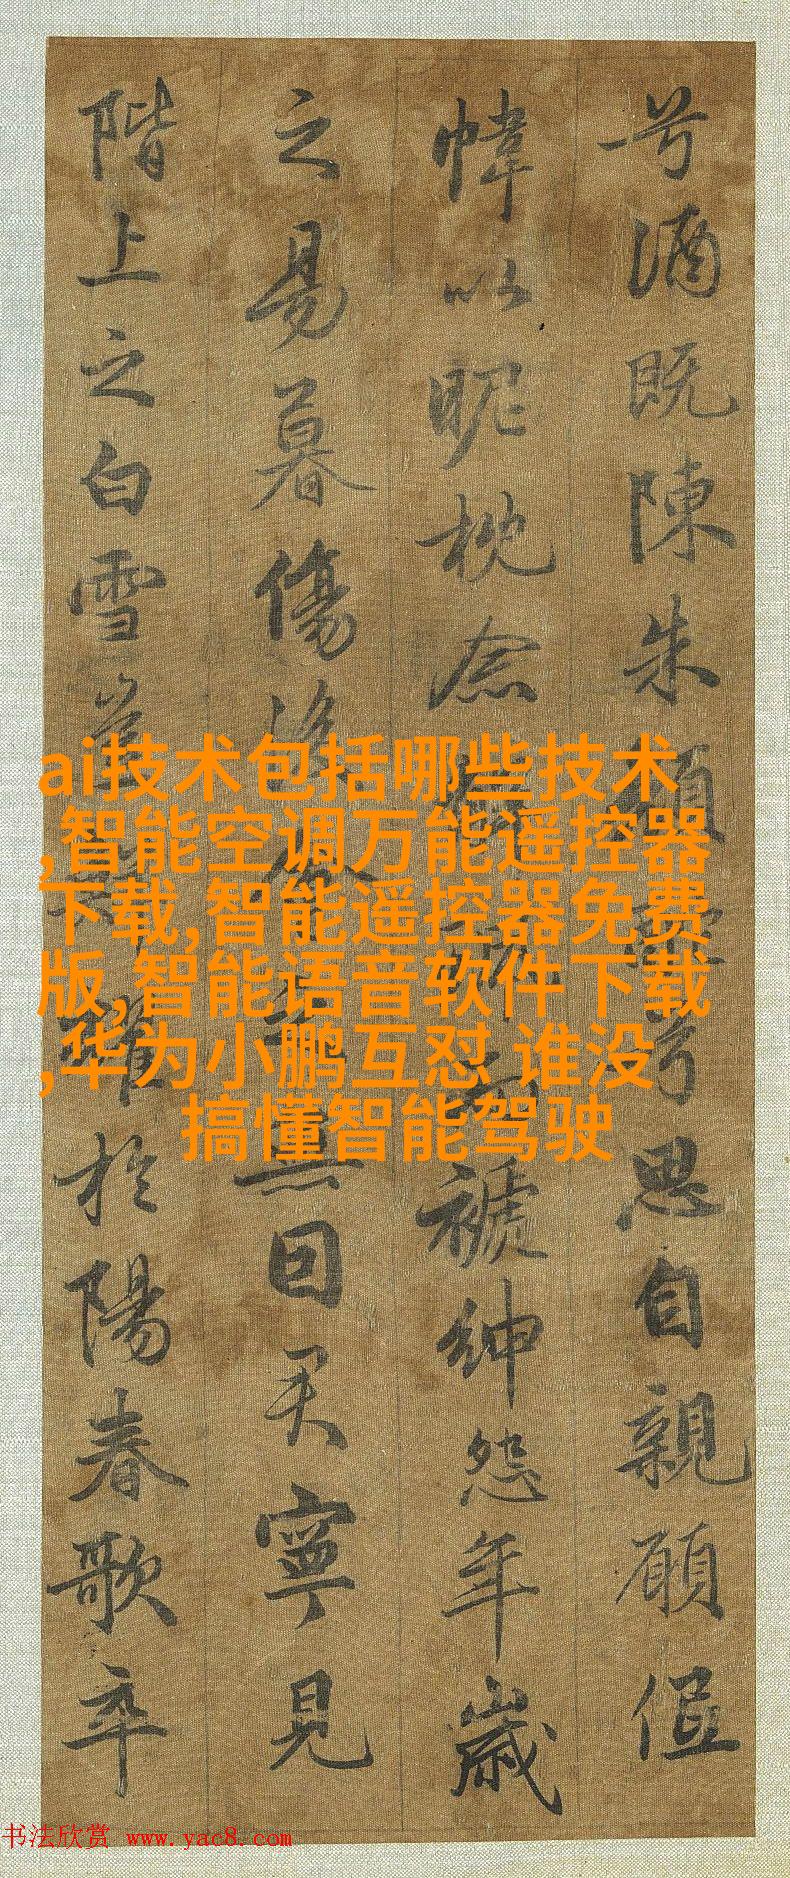 兮酒既陳朱顏兮思自親願低
幃以昵枕念褫紳怨年歲
之易暮傷後無因君寧見
階上之白雪豈耀於陽春歌卒
ai技术包括哪些技术
,智能空调万能遥控器
下载,智能遥控器免费
版,智能语音软件下载
,华为小鹏互怼 谁没
搞懂智能驾驶
书法欣赏 www.yac8.com